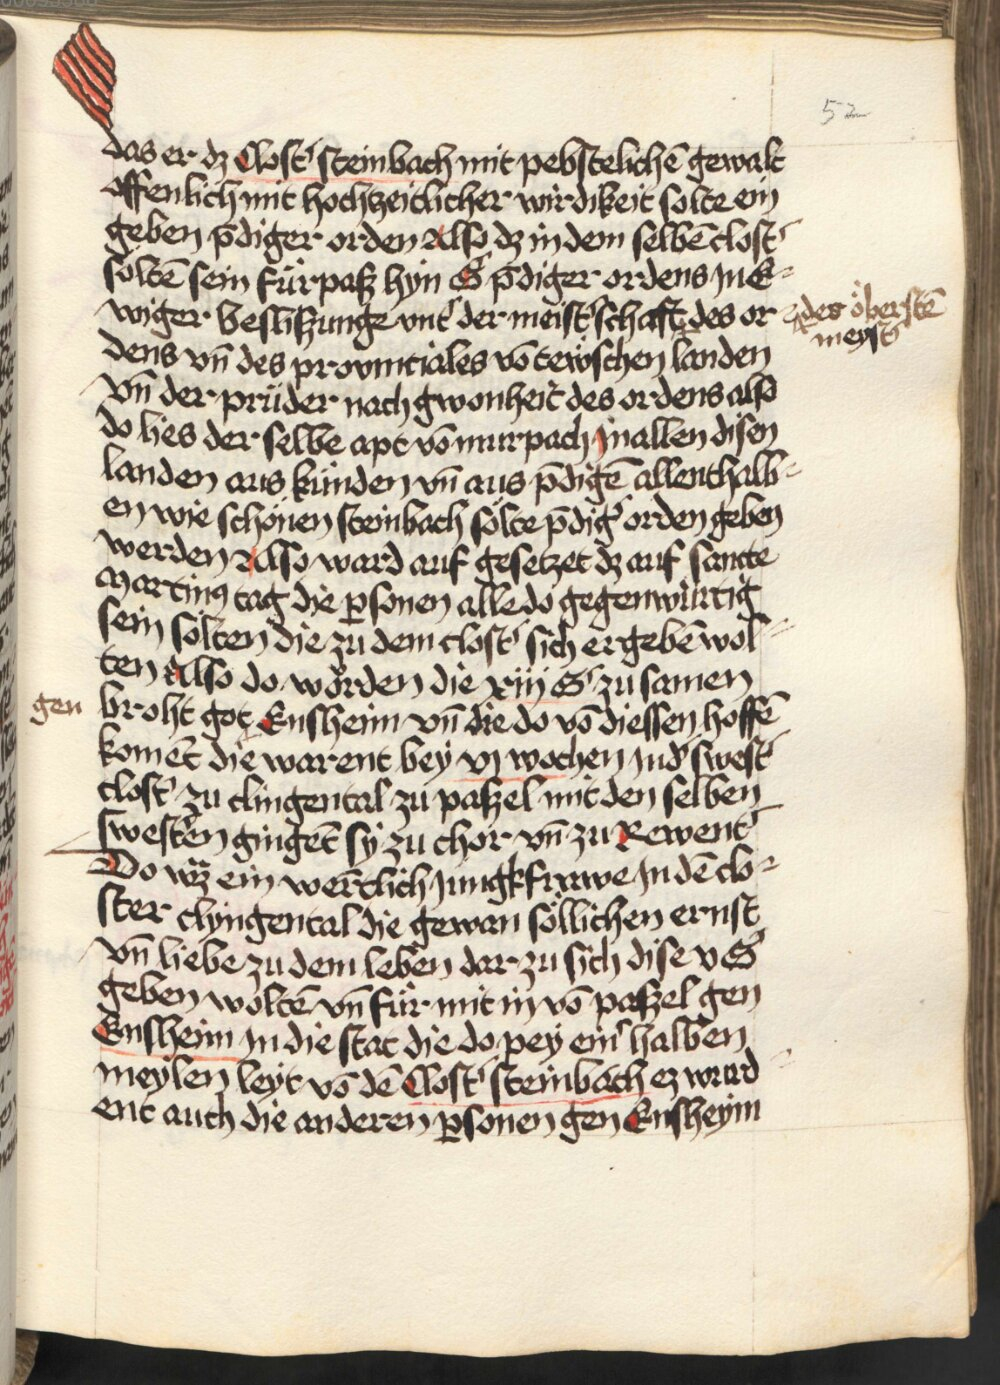 52
das er dz Clost' steinbach mit pebstelichē gewalt
offenlich mit hochzeitlicher wirdikeit solte ein
geben p̄diger orden Also dz in dem selbē clost'
söltē sein fürpaß hyn S p̄diger ordens in E=
wiger beslißunge vnt' der meist'schaft des or
des öberstē
meyst'
dens vn̄ des provinciales vō tewschen landen
Vn̄ der prüder nach gwonheit des ordens also
do lies der selbe apt vō murpach in allen disen
landen aus künden vn̄ aus p̄digē allenthalb=
en wie schönen steinbach sölte p̄dig' orden geben
werden Also ward auf gesetzet dz auf sancte
Martinꝰ tag die ꝑsonen alle do gegenwürtig
sein sölten die zu dem clost' sich ergebē wol=
ten Also do wörden die xiij S' zu samen
gen
broht got Ensheim vn̄ die do vō diessen hoffē
komēt die warent bey vj wochen in d' swest'
clost' zu clingental zu paßel mit den selben
swest'en gingēt sy zu chor vn̄ zu Rewent'
Do wz ein wertlich jungkfrawe in dē clo=
ster clyngental die gewan söllichen ernst
vn̄ liebe zu dem leben dar zu sich dise v S'
geben woltē vn̄ für mit in vō paßel gen
Ensheim in die stat die do pey ein' halben
meylen leyt vō dē Clost' steinbach ez wurd
ent auch die anderen ꝑsonen gen Ensheym